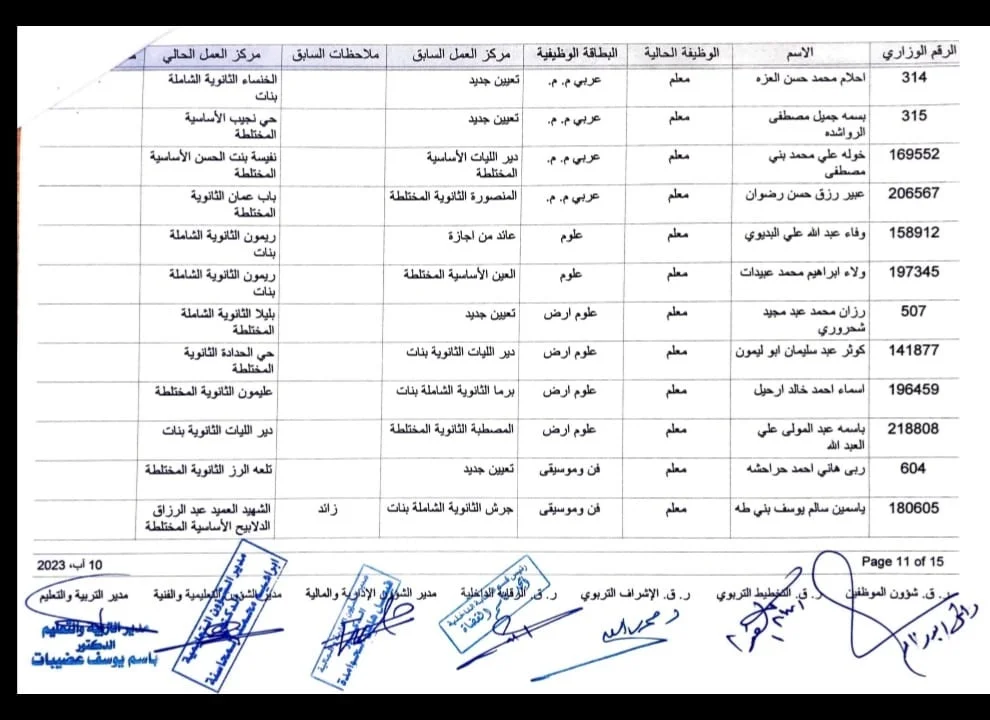 الرقم الوزاري الاسم الوظيفة الحالية البطاقة الوظيفية مركز العمل السابق ملاحظات السابق مركز العمل الحالي
314 احلام محمد حسن العزه معلم عربي م. م. تعيين جديد الخنساء الثانوية الشاملة
بنات
315 بسمه جميل مصطفى معلم عربي م. م. تعيين جديد حي نجيب الأساسية
الرواشده المختلطة
169552 خوله علي محمد بني معلم عربي م. م. دير الليات الأساسية نفيسة بنت الحسن الأساسية
مصطفى المختلطة المختلطة
206567 عبير رزق حسن رضوان معلم عربي م. م. المنصورة الثانوية المختلطة باب عمان الثانوية
المختلطة
158912 وفاء عبد الله علي البديوي معلم علوم عائد من اجازة ريمون الثانوية الشاملة
بنات
197345 ولاء ابراهيم محمد عبيدات معلم علوم العين الأساسية المختلطة ريمون الثانوية الشاملة
بنات
507 رزان محمد عبد مجيد معلم علوم ارض تعيين جديد بليلا الثانوية الشاملة
شحروري المختلطة
141877 كوثر عبد سليمان ابو ليمون معلم علوم ارض دير الليات الثانوية بنات حي الحدادة الثانوية
المختلطة
196459 اسماء احمد خالد ارحيل معلم علوم ارض برما الثانوية الشاملة بنات عليمون الثانوية المختلطة
218808 باسمه عبد المولى علي معلم علوم ارض المصطبة الثانوية المختلطة دير الليات الثانوية بنات
العبد الله
604 ربى هاني احمد حراحشه معلم فن وموسيقى تعيين جديد تلعه الرز الثانوية المختلطة
180605 ياسمين سالم يوسف بني طه معلم فن وموسيقى جرش الثانوية الشاملة بنات زائد الشهيد العميد عبد الرزاق
الدلابيح الأساسية المختلطة
Page 11 of 15 10 آب، 2023
ر. ق. شؤون الموظفين ر. ق. التخطيط التربوي ر. ق. الإشراف التربوي ر. ق. الرقابة الداخلية مدير الشؤون الإدارية والمالية مدير الشؤون التعليمية والفنية مدير التربية والتعليم
مدير التربية والتعليم
الدكتور
باسم يوسف عضيبات